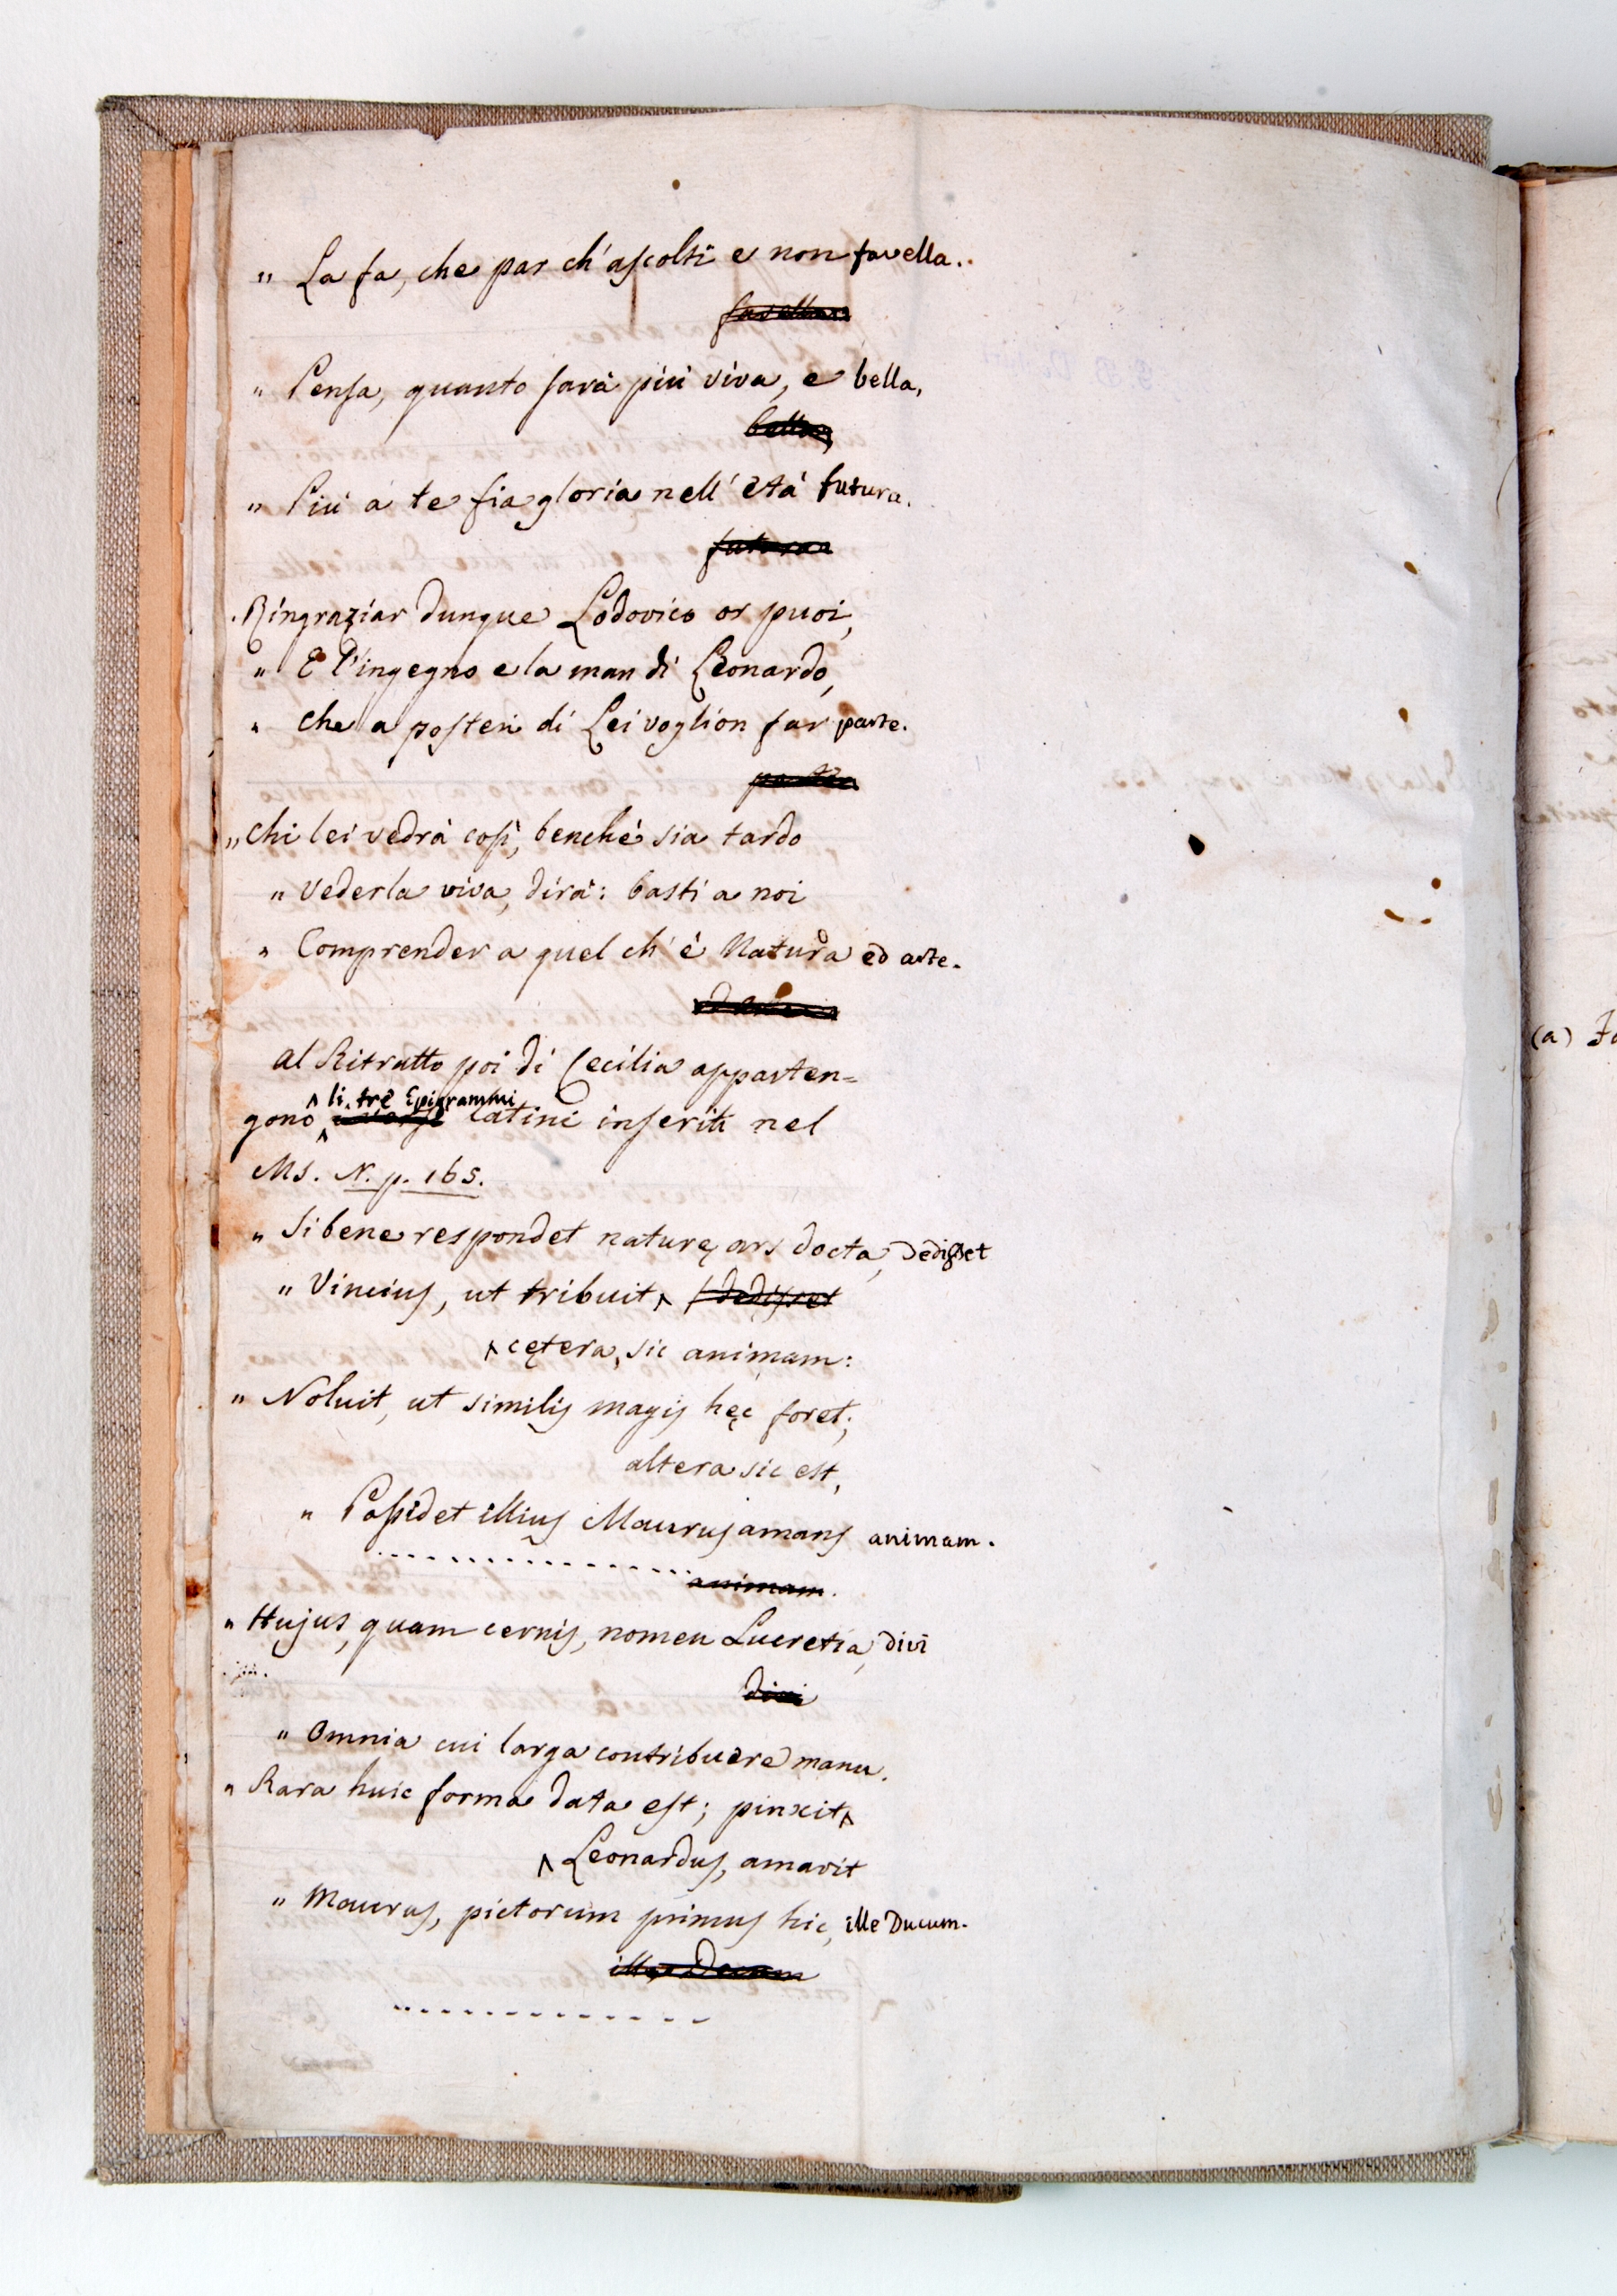 " La fa, che par ch'ascolti e non favella.
favella:
" Pensa, quanto sarà più viva, e bella,
bella,
" Più à te fia gloria nell' età futura.
futura
" Ringraziar dunque Lodovico or puoi,
" E l'ingegno e la man di Leonardo,
" Che a posteri di Lei voglion far parte.
parte.
" Chi lei vedrà così, benchè sia tardo
" Vederla viva, dirà: basti a noi
" Comprender a quel ch' è Natura ed arte.
ed arte.
Al Ritratto poi di Cecilia apparten=
gono li tre Epigrammi latini inseriti nel
Ms. N. p. 165.
" Si bene respondet naturę ars docta, dedisset
" Vincius, ut tribuit dedisset
cętera, sic animam:
" Noluit, ut similis magis hęc foret;
altera sic est,
" Possidet illius Maurus amans animam.
animam.
" Hujus, quam cernis, nomen Lucretia, divi
divi
" Omnia cui larga contribuere manu.
" Rara huic forma data est; pinxit
Leonardus, amavit
" Maurus, pictorum primus hic, ille Ducum.
ille Ducum
(a)